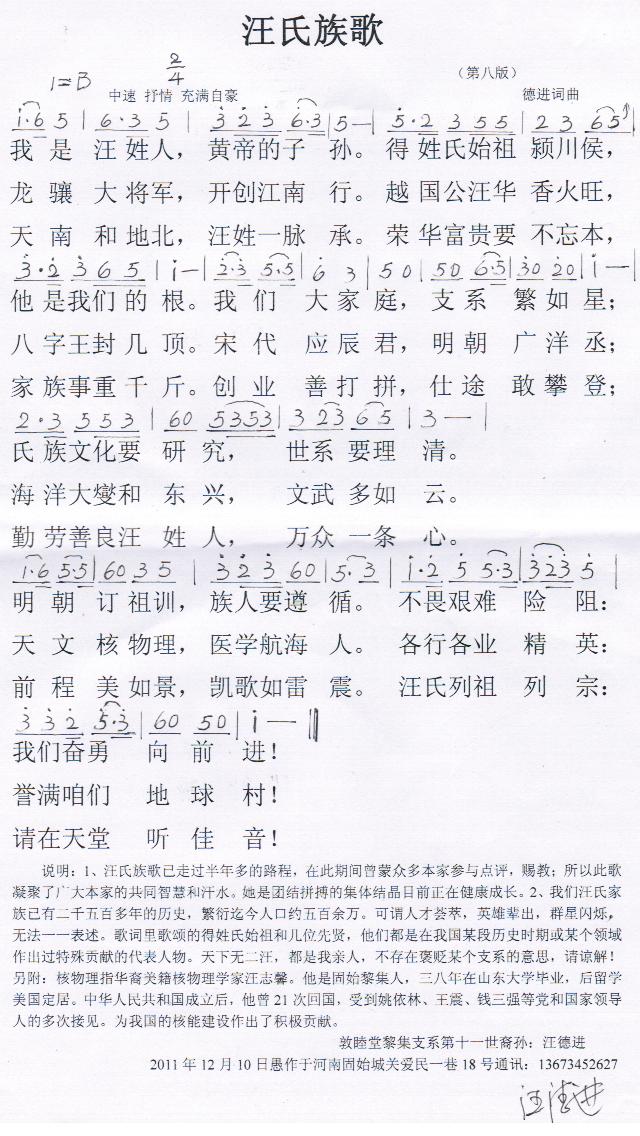 汪氏族歌
2/4
1=B 中速 抒情 充满自豪
（第八版）
德进词曲
我 是 汪 姓人，黄帝的子 孙。得 姓氏始祖 颍川侯，
龙 骧 大 将军，开创江南 行。越 国公汪华 香火旺，
天 南 和 地北，汪姓一脉 承。荣 华富贵要 不忘本，
他 是我们 的 根。我 们 大 家 庭，支 系 繁 如 星；
八 字王封 几 顶。宋 代 应 辰 君，明 朝 广 洋 丞；
家 族事重 千 斤。创 业 善 打 拼，仕 途 敢 攀 登；
氏 族文化要 研 究， 世系 要理 清。
海 洋大燮和 东 兴， 文武 多如 云。
勤 劳善良汪 姓 人， 万众 一条 心。
明 朝 订 祖训，族人要遵 循。不畏艰难 险 阻：
天 文 核 物理，医学航海 人。各行各业 精 英：
前 程 美 如景，凯歌如雷 震。汪氏列祖 列 宗：
我们奋勇 向 前 进！
誉满咱们 地 球 村！
请在天堂 听 佳 音！
说明：1、汪氏族歌已走过半年多的路程，在此期间曾蒙众多本家参与点评，赐教；所以此歌
凝聚了广大本家的共同智慧和汗水。她是团结拼搏的集体结晶目前正在健康成长。2、我们汪氏家
族已有二千五百多年的历史，繁衍迄今人口约五百余万。可谓人才荟萃，英雄辈出，群星闪烁，
无法一一表述。歌词里歌颂的得姓氏始祖和几位先贤，他们都是在我国某段历史时期或某个领域
作出过特殊贡献的代表人物。天下无二汪，都是我亲人，不存在褒贬某个支系的意思，请谅解！
另附：核物理指华裔美籍核物理学家汪志馨。他是固始黎集人，三八年在山东大学毕业，后留学
美国定居。中华人民共和国成立后，他曾 21 次回国，受到姚依林、王震、钱三强等党和国家领导
人的多次接见。为我国的核能建设作出了积极贡献。
敦睦堂黎集支系第十一世裔孙：汪德进
2011 年 12 月 10 日愚作于河南固始城关爱民一巷 18 号通讯：13673452627
汪德进